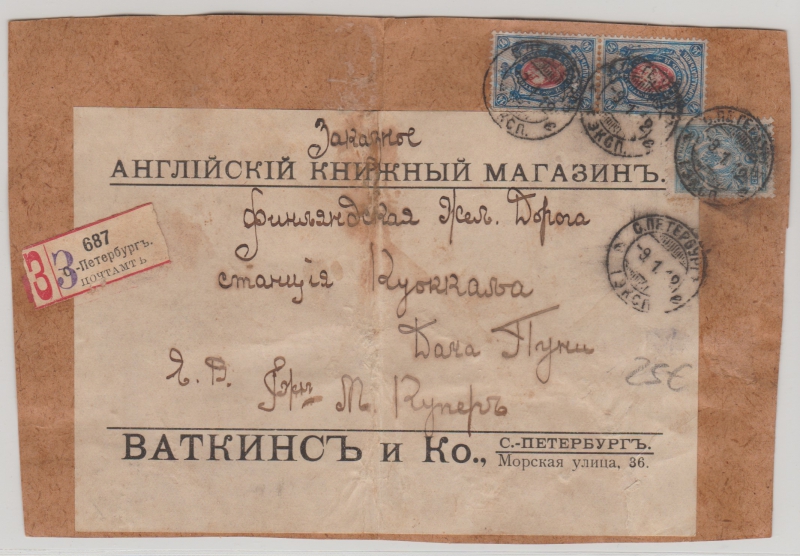 Заказное
АНГЛІЙСКІЙ КНИЖНЫЙ МАГАЗИНЪ.
Финляндская Жел. Дорога
станція Куоккала
Дача Пуни
Я. В.
М. Куперъ
ВАТКИНСЪ и Ко., С.-ПЕТЕРБУРГЪ.
Морская улица, 36.
З 687
С.-Петербургъ.
ПОЧТАМТЪ
С.ПЕТЕРБУРГ
-9.1
1 ЭКСП.
25€